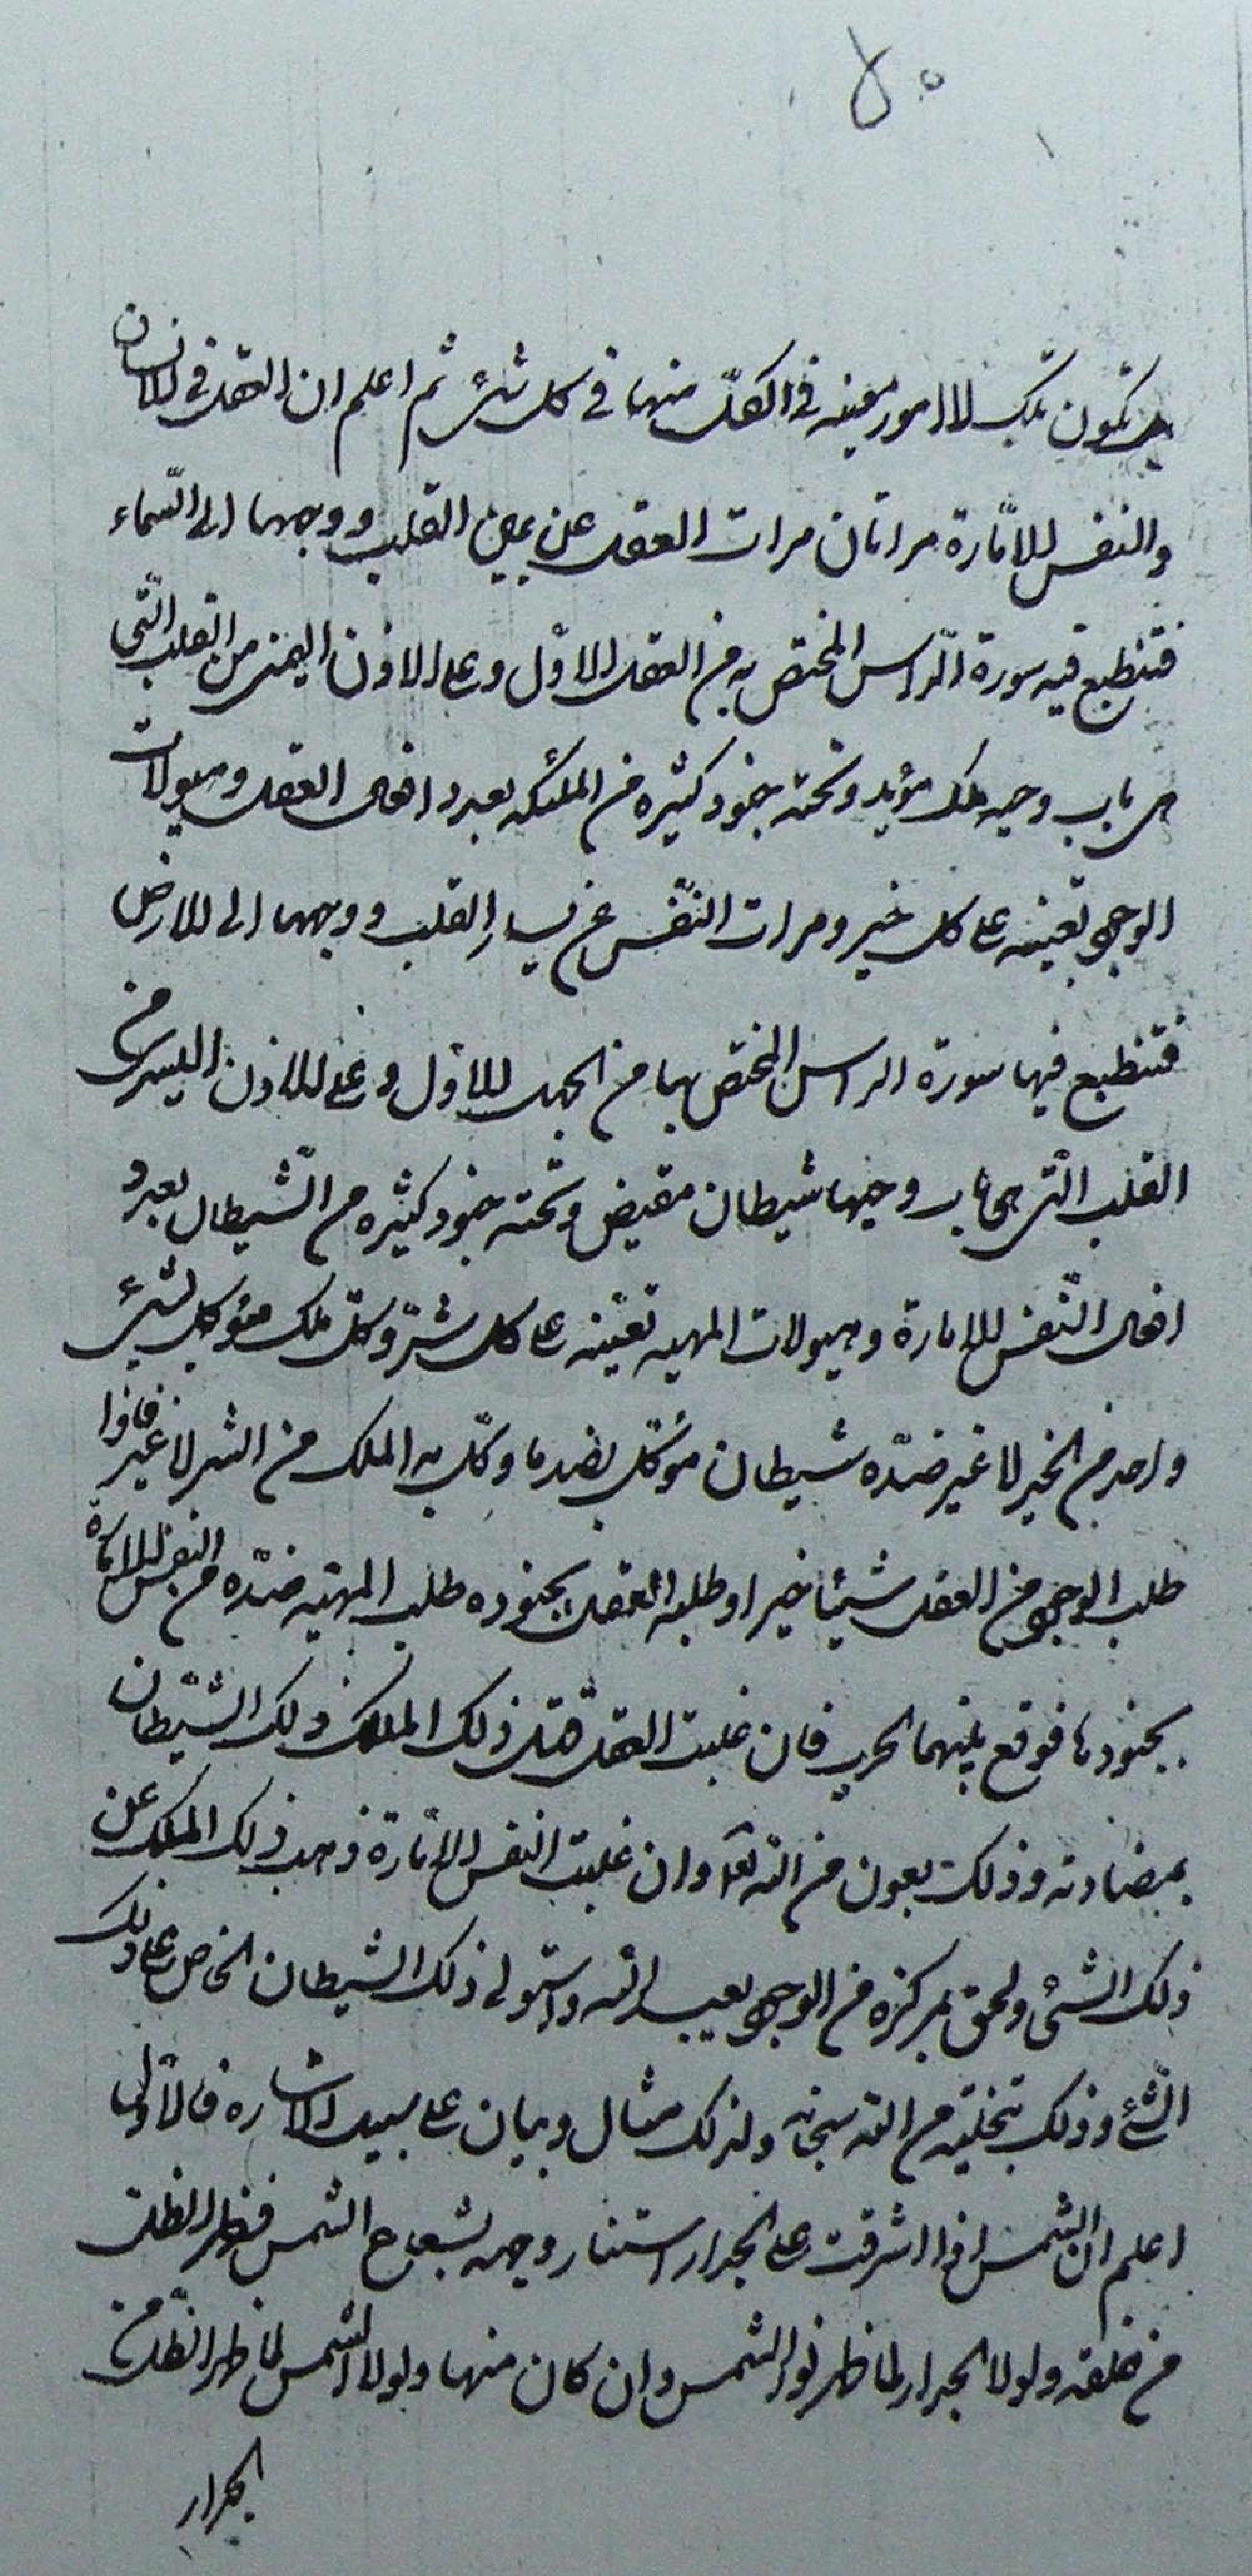 بل تكون تلك الامور معينه فى الكلّ منها فى كل شئ ثم اعلم ان العقل فى الانسان
والنفس الامّارة مراتان مرات العقل عن يمين القلب ووجهها الى السّماء
فتنطبع فيه سورة الرّاس المختص به من العقل الاوّل وعلى الاذن اليمنى من القلب التّى
هى باب وجيه ملك مؤيد وتحته جنود كثيره من الملئكه بعدد افعال العقل وميولات
الوجود تعينه على كل خير ومرات النّفس عن يسار القلب ووجهها الى الارض
فتنطبع فيها سورة الراس المختص بها من الجهل الاوّل وعلى الاذن اليسرى من
القلب التّى هى باب وجيها شيطان مقيض وتحته جنود كثيره من الشّيطان بعدد
افعال النّفس الامارة وميولات المهيه تعينه على كل شرّ وكلّ ملك مؤكل بشئ
واحد من الخير لا غير ضدّه شيطان مؤكّل بضد ما وكّل به الملك من الشر لا غير فاذا
طلب الوجود من العقل شيئا خيرا وطلبه العقل بجنوده طلب المهيّه ضدّه من النفس الامارة
بجنودها فوقع بينهما الحرب فان غلبت العقل قتل ذلك الملك ذلك الشّيطان
بمضادته وذلك بعون من الله تعا وان غلبت النفس الامّارة ذهب ذلك الملك عن
ذلك الشئى ولحق بمركزه من الوجود يعبد الله واستولى ذلك الشيطان الخاص على ذلك
الشّئ وذلك بتخليه من الله سبحانه ولذلك مثال وبيان على سبيل الاشاره فالاوّل
اعلم ان الشمس اذا اشرقت على الجدار استنار وجهه بشعاع الشمس فظهر الظل
من خلفه ولولا الجدار لما ظهر نور الشمس وان كان منها ولولا الشمس لما ظهر الظل من
الجدار